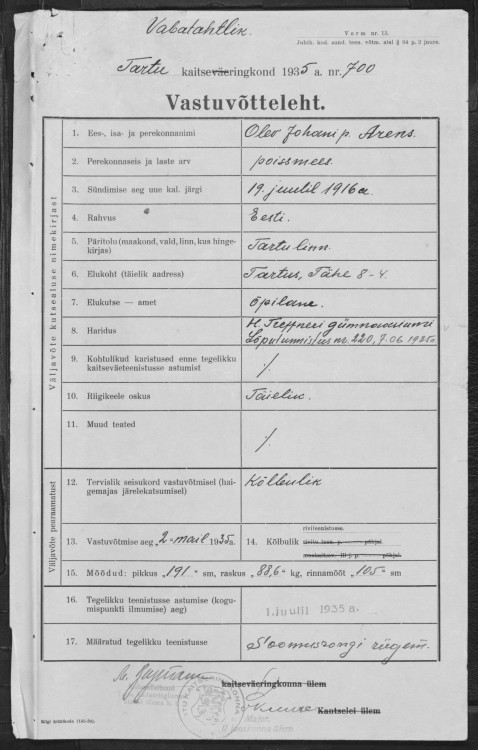 Vabatahtlik.
Vorm nr. 13.
Juhik. kut. sund. teen. võtm. alal § 94 p. 2 juure.
Tartu kaitseväeringkond 1935 a. nr. 700
Vastuvõtteleht.
Väljavõte kutsealuse nimekirjast
1. Ees-, isa- ja perekonnanimi Olev Johani p. Arens.
2. Perekonnaseis ja laste arv poissmees.
3. Sündimise aeg uue kal. järgi 19. juulil 1916 a.
4. Rahvus Eesti.
5. Päritolu (maakond, vald, linn, kus hinge-
kirjas) Tartu linn.
6. Elukoht (täielik aadress) Tartus, Tähe 8-4.
7. Elukutse — amet õpilane.
8. Haridus H. Treffneri gümnaasiumi
lõputunnistus nr. 220, 7.06 1935a
9. Kohtulikud karistused enne tegelikku
kaitseväeteenistusse astumist /.
10. Riigikeele oskus Täielik.
11. Muud teated /.
Väljavõte peuraamatust
12. Tervislik seisukord vastuvõtmisel (hai-
gemajas järelekatsumisel) Kõlbulik
13. Vastuvõtmise aeg „2" mail 1935 a.
14. Kõlbulik riviteenistusse.
15. Mõõdud: pikkus „191" sm, raskus „83,6" kg, rinnamõõt „105" sm
16. Tegelikku teenistusse astumise (kogu-
mispunkti ilmumise) aeg) 1. juulil 1935 a.
17. Määratud tegelikku teenistusse Soomusrongi rügem.
kaitseväeringkonna ülem
Kantselei ülem
Major,